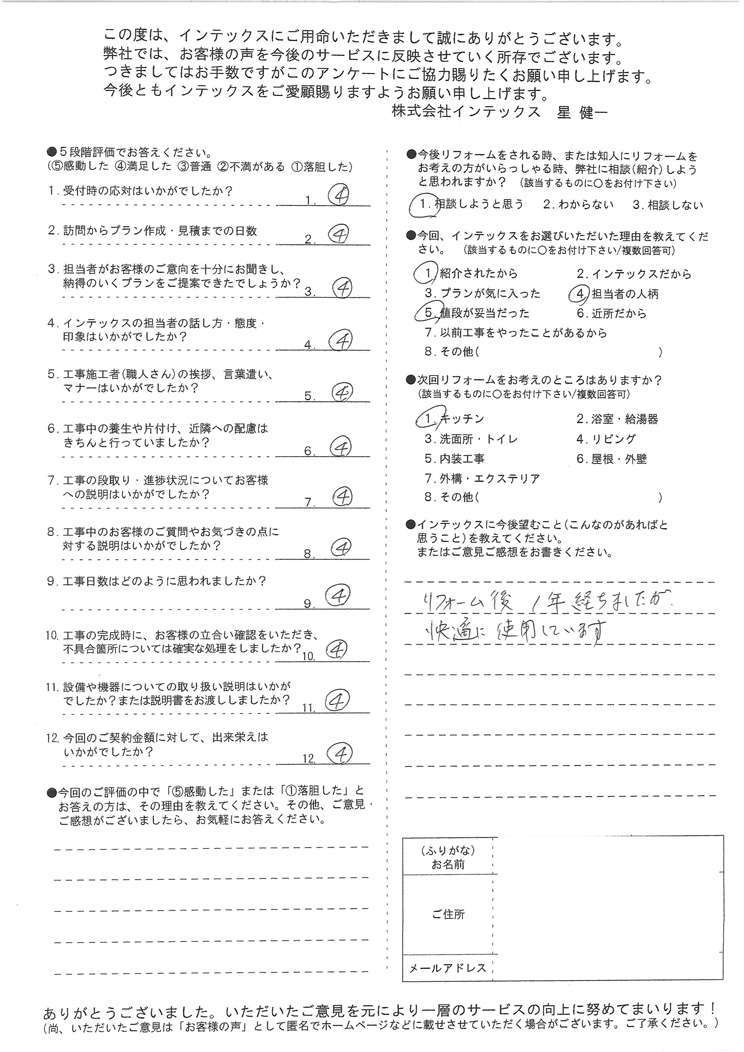 この度は、インテックスにご用命いただきまして誠にありがとうございます。
弊社では、お客様の声を今後のサービスに反映させていく所存でございます。
つきましてはお手数ですがこのアンケートにご協力賜りたくお願い申し上げます。
今後ともインテックスをご愛顧賜りますようお願い申し上げます。
株式会社インテックス　星 健一
●５段階評価でお答えください。
(⑤感動した ④満足した ③普通 ②不満がある ①落胆した)
1. 受付時の応対はいかがでしたか？
1. ④
2. 訪問からプラン作成・見積までの日数
2. ④
3. 担当者がお客様のご意向を十分にお聞きし、
納得のいくプランをご提案できたでしょうか？
3. ④
4. インテックスの担当者の話し方・態度・
印象はいかがでしたか？
4. ④
5. 工事施工者(職人さん)の挨拶、言葉遣い、
マナーはいかがでしたか？
5. ④
6. 工事中の養生や片付け、近隣への配慮は
きちんと行っていましたか？
6. ④
7. 工事の段取り・進捗状況についてお客様
への説明はいかがでしたか？
7. ④
8. 工事中のお客様のご質問やお気づきの点に
対する説明はいかがでしたか？
8. ④
9. 工事日数はどのように思われましたか？
9. ④
10. 工事の完成時に、お客様の立合い確認をいただき、
不具合箇所については確実な処理をしましたか？
10. ④
11. 設備や機器についての取り扱い説明はいかが
でしたか？または説明書をお渡ししましたか？
11. ④
12. 今回のご契約金額に対して、出来栄えは
いかがでしたか？
12. ④
●今回のご評価の中で「⑤感動した」または「①落胆した」と
お答えの方は、その理由を教えてください。その他、ご意見・
ご感想がございましたら、お気軽にお答えください。
●今後リフォームをされる時、または知人にリフォームを
お考えの方がいらっしゃる時、弊社に相談(紹介)しよう
と思われますか？（該当するものに○をお付け下さい）
1. 相談しようと思う　2. わからない　3. 相談しない
●今回、インテックスをお選びいただいた理由を教えてくだ
さい。（該当するものに○をお付け下さい/複数回答可）
1. 紹介されたから　2. インテックスだから
3. プランが気に入った　4. 担当者の人柄
5. 値段が妥当だった　6. 近所だから
7. 以前工事をやったことがあるから
8. その他(　)
●次回リフォームをお考えのところはありますか？
（該当するものに○をお付け下さい/複数回答可）
1. キッチン　2. 浴室・給湯器
3. 洗面所・トイレ　4. リビング
5. 内装工事　6. 屋根・外壁
7. 外構・エクステリア
8. その他(　)
●インテックスに今後望むこと(こんなのがあればと
思うこと)を教えてください。
またはご意見ご感想をお書きください。
リフォーム後 1年経ちましたが、
快適に使用しています
(ふりがな)
お名前
ご住所
メールアドレス
ありがとうございました。いただいたご意見を元により一層のサービスの向上に努めてまいります！
(尚、いただいたご意見は「お客様の声」として匿名でホームページなどに載せさせていただく場合がございます。ご了承ください。)